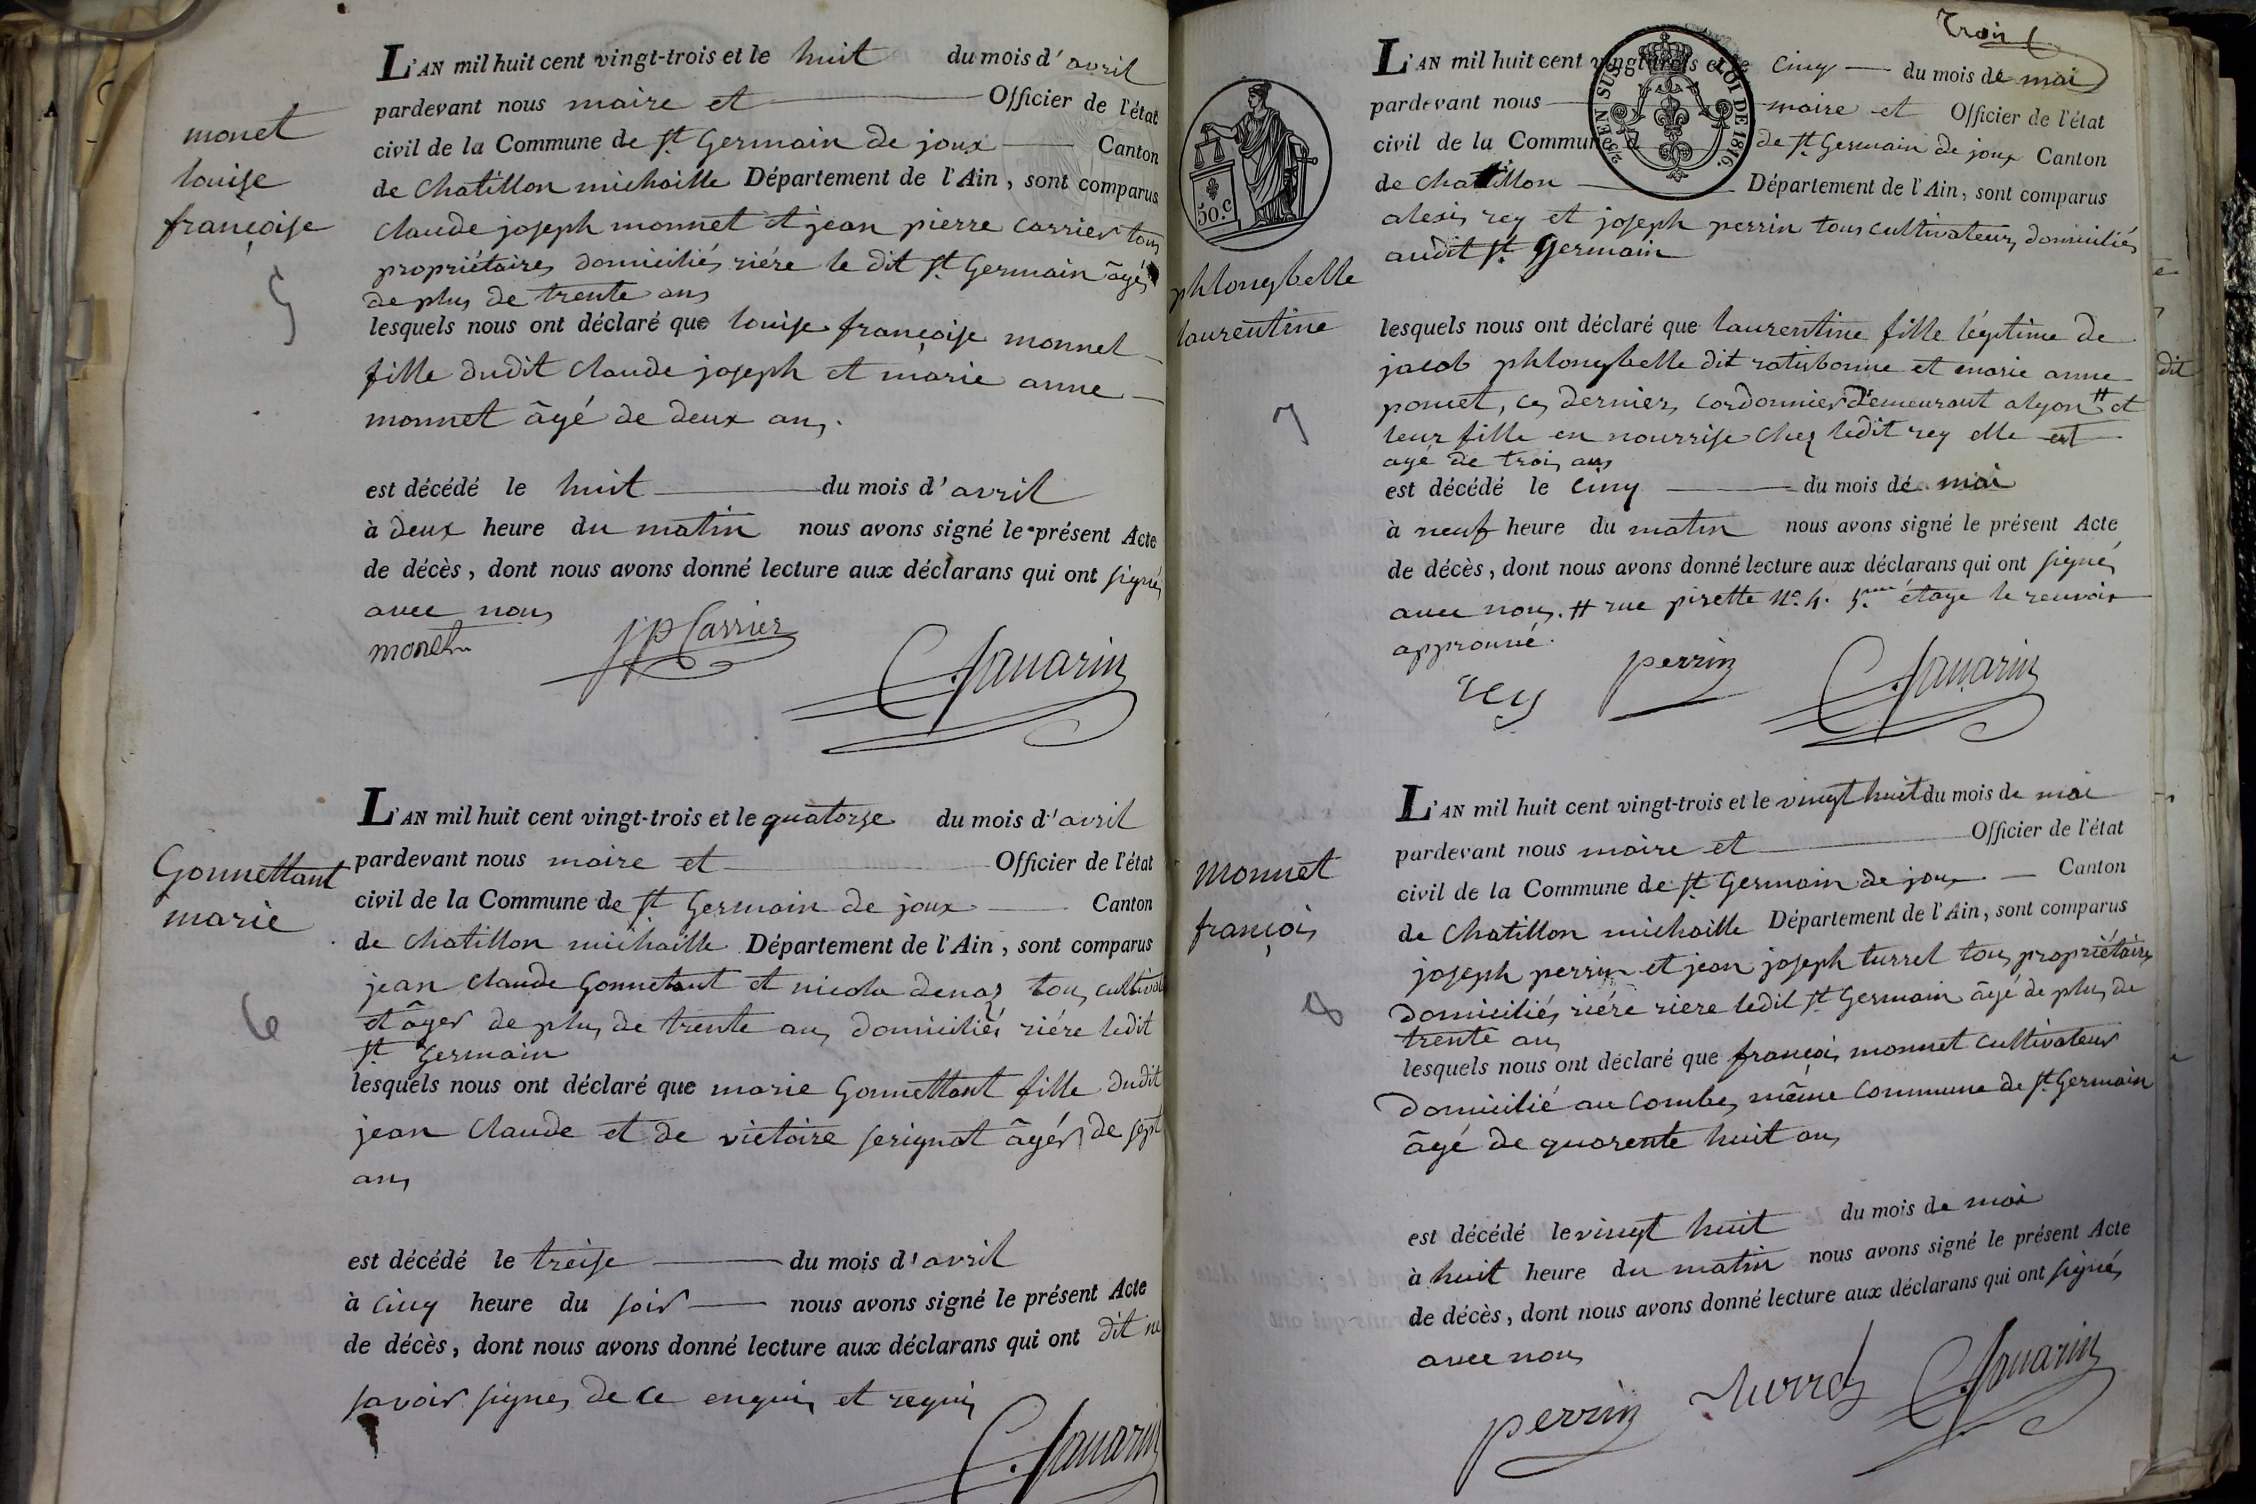 monet
louise
françoise
5
L'AN mil huit cent vingt-trois et le huit du mois d'avril
pardevant nous maire et Officier de l'état
civil de la Commune de st Germain de joux Canton
de Chatillon michaille Département de l'Ain, sont comparus
claude joseph monnet et jean pierre carrier tous
propriétaires domiciliés riére le dit st Germain âgés
de plus de trente ans
lesquels nous ont déclaré que louise françoise monnet
fille dudit claude joseph et marie anne
monnet âgé de deux ans.
est décédé le huit du mois d'avril
à deux heure du matin nous avons signé le présent Acte
de décès, dont nous avons donné lecture aux déclarans qui ont signés
avec nous
monet jp Carrier
C. Savarin
Gonnettant
marie
6
L'AN mil huit cent vingt-trois et le quatorze du mois d'avril
pardevant nous maire et Officier de l'état
civil de la Commune de st Germain de joux Canton
de Chatillon michaille Département de l'Ain, sont comparus
jean claude Gonnetant et nicola tous
et âger de plus de trente ans domiciliés riére ledit
st Germain
lesquels nous ont déclaré que marie Gonnettant fille dudit
jean Claude et de victoire serignat âgér de sept
ans
est décédé le treise du mois d'avril
à cinq heure du soir nous avons signé le présent Acte
de décès, dont nous avons donné lecture aux déclarans qui ont dit ne
savoir signer de ce enquis et requis
C. Savarin
Trois
2/5 EN SUS LOI DE 1816.
50.c
phlongbelle
laurentine
7
L'AN mil huit cent vingt-trois et le cinq du mois de mai
pardevant nous maire et Officier de l'état
civil de la Commune de st Germain de joux Canton
de Chatillon Département de l'Ain, sont comparus
alexis rey et joseph perrin tous cultivateurs domiciliés
audit st Germain
lesquels nous ont déclaré que laurentine fille légitime de
jacob phlongbelle dit ratisbonne et marie anne
poncet, ces derniers cordonnier demeurant a lyon # et
leur fille en nourrise chez ledit rey elle est
agé de trois ans
est décédé le cinq du mois de mai
à neuf heure du matin nous avons signé le présent Acte
de décès, dont nous avons donné lecture aux déclarans qui ont signés
avec nous. # rue pisette No. 4. 5.me étage le renvoir
approuvé.
rey perrin C. Savarin
monnet
françois
8
L'AN mil huit cent vingt-trois et le vingt huit du mois de mai
pardevant nous maire et Officier de l'état
civil de la Commune de st Germain de joux Canton
de Chatillon michaille Département de l'Ain, sont comparus
joseph perrin et jean joseph turrel tous propriétaires
domiciliés riére riere ledit st Germain âgé de plus de
trente ans
lesquels nous ont déclaré que françois monnet cultivateur
domicilié au combes même commune de st Germain
âgé de quarente huit ans
est décédé le vingt huit du mois de mai
à huit heure du matin nous avons signé le présent Acte
de décès, dont nous avons donné lecture aux déclarans qui ont signés
avec nous
perrin turrel C. Savarin
dit